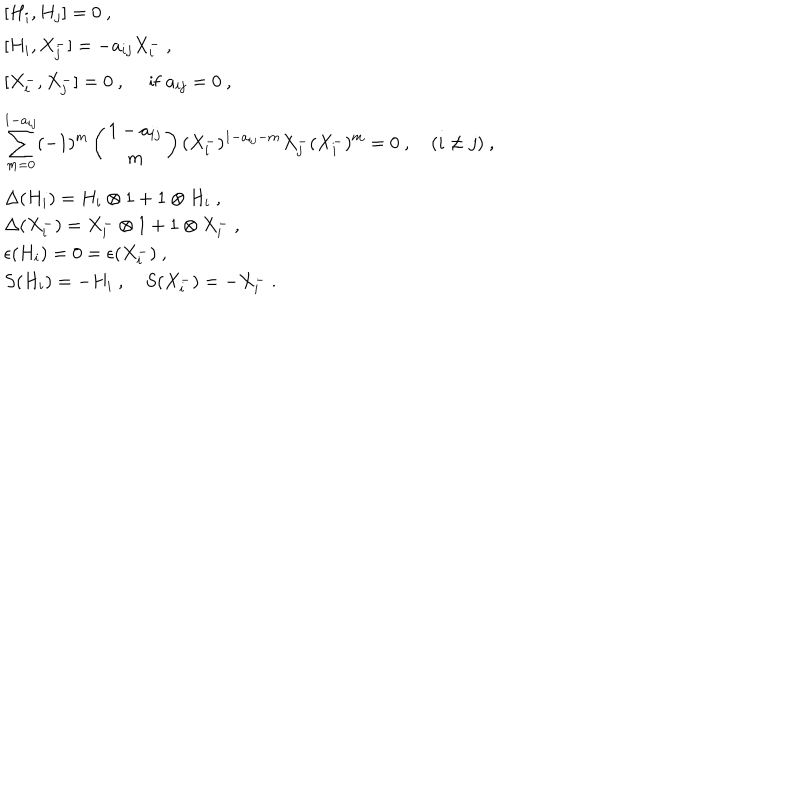 [H_i, H_j] = 0 ,
[H_i, X_j^-] = -a_{ij} X_i^- ,
[X_i^-, X_j^-] = 0 , if a_{ij} = 0 ,
\sum_{m=0}^{1-a_{ij}} (-1)^m \binom{1-a_{ij}}{m} (X_i^-)^{1-a_{ij}-m} X_j^- (X_i^-)^m = 0 , (i ≠ j) ,
Δ(H_i) = H_i ⊗ 1 + 1 ⊗ H_i ,
Δ(X_i^-) = X_i^- ⊗ 1 + 1 ⊗ X_i^- ,
ϵ(H_i) = 0 = ϵ(X_i^-) ,
S(H_i) = -H_i , S(X_i^-) = -X_i^- .